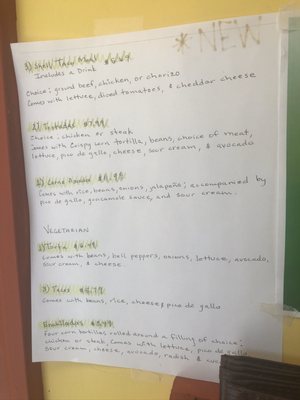 *NEW
3) Shell Taco Meals
Includes a Drink
Choice: ground beef, chicken, or chorizo
Comes with lettuce, diced tomatoes, & cheddar cheese
2) Tostadas $7.99
Choice: chicken or steak
Comes with crispy corn tortilla, beans, choice of meat,
lettuce, pico de gallo, cheese, sour cream, & avocado
Carne
Comes with rice, beans, onions, jalapeño; accompanied by
pico de gallo, guacamole sauce, and sour cream.
VEGETARIAN
Torta
Comes with beans, bell peppers, onions, lettuce, avocado,
sour cream, & cheese.
3) Tacos
Comes with beans, rice, cheese & pico de gallo
Enchiladas
Four corn tortillas rolled around a filling of choice;
chicken or steak, comes with lettuce, pico de gallo
sour cream, cheese, avocado, radish &